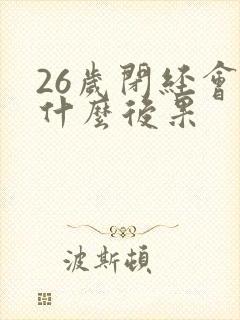 26歲閉經會
什麼後果
波斯頓